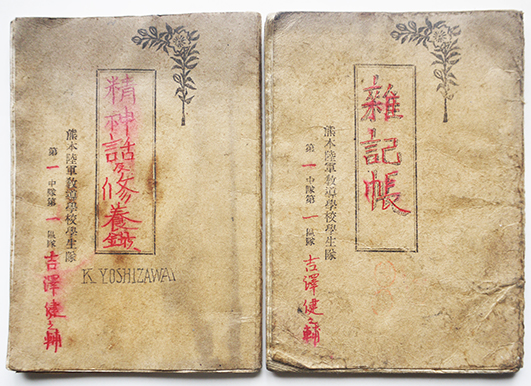 精神話及修養錄
熊本陸軍教導學校學生隊
第一中隊第一區隊
吉澤健之輔
K. YOSHIZAWA
雜記帳
熊本陸軍教導學校學生隊
第一中隊第一區隊
吉澤健之輔